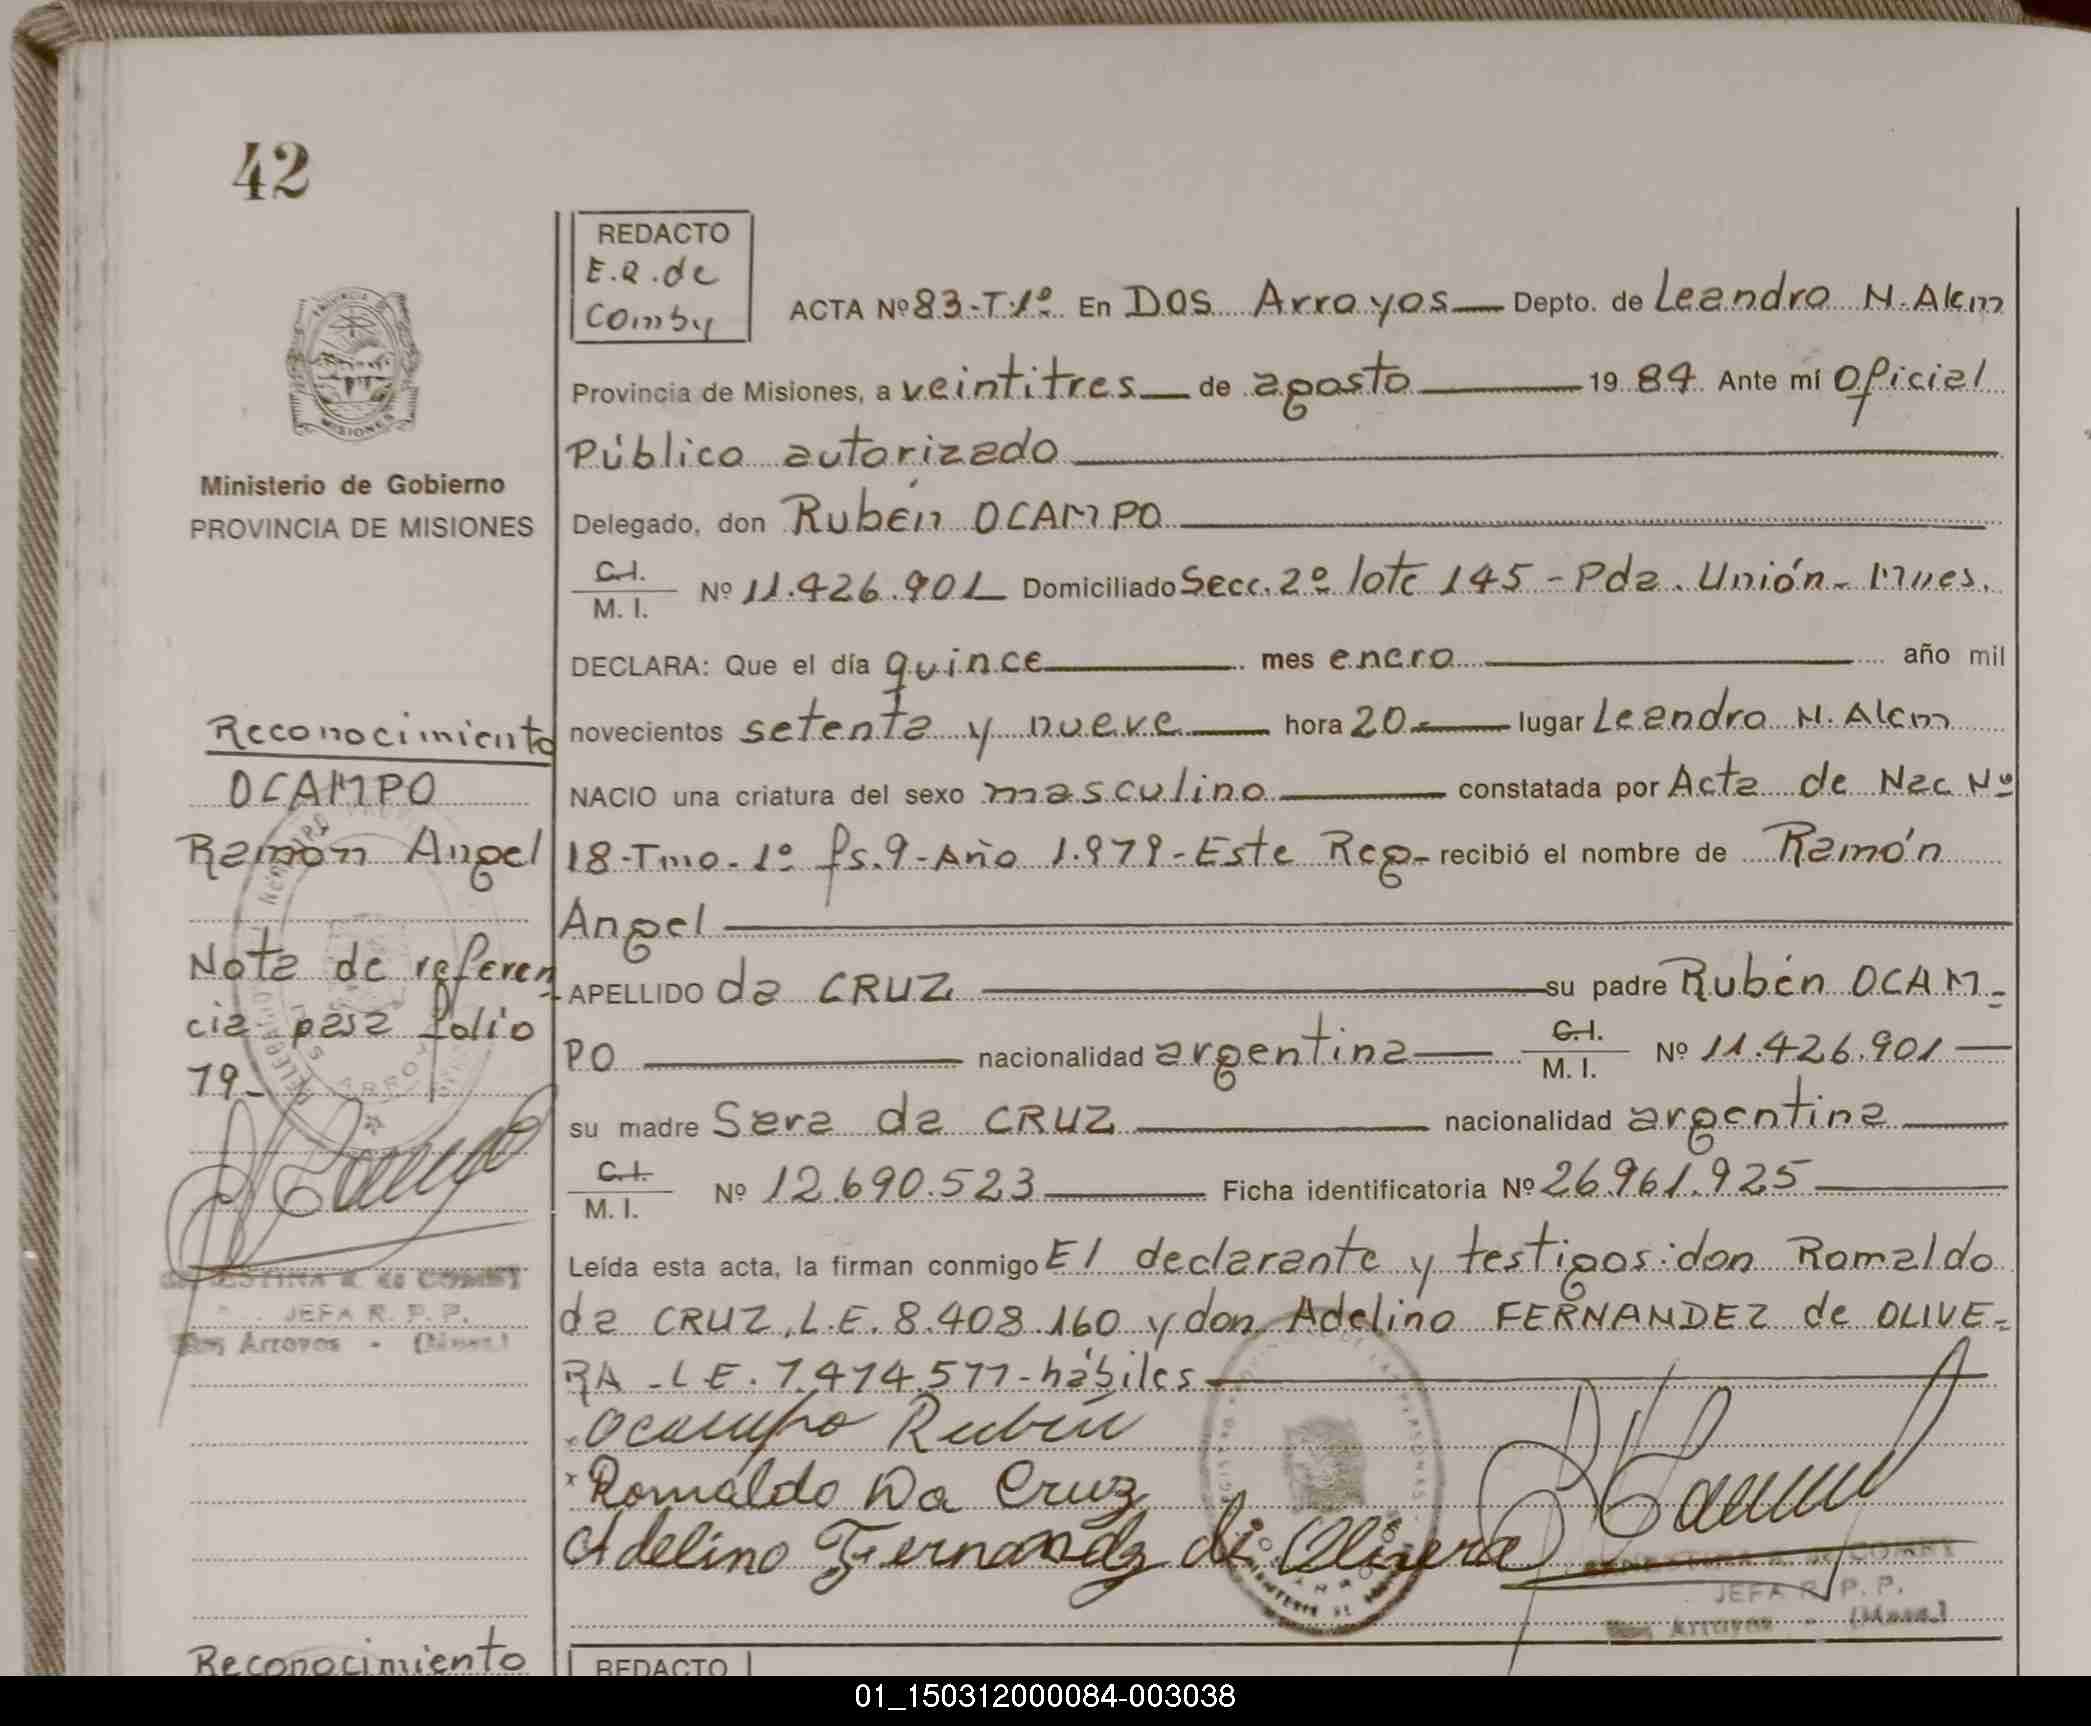 42
REDACTO
E.R. de
Comby
ACTA Nº 83-T.1º En DOS Arroyos Depto. de Leandro N. Alem
Provincia de Misiones, a veintitres de agosto 1984 Ante mí Oficial
Público autorizado
Delegado, don Rubén OCAMPO
C.I. / M. I. Nº 11.426.901 Domiciliado Secc. 2º lote 145 - Pda. Unión - Mnes.
DECLARA: Que el día quince mes enero año mil
novecientos setenta y nueve hora 20 lugar Leandro N. Alem
NACIO una criatura del sexo masculino constatada por Acta de Nac Nº
18-Tmo-1º fs. 9-Año 1.979-Este Reg- recibió el nombre de Ramón
Angel
APELLIDO da CRUZ su padre Rubén OCAM-
PO nacionalidad argentina C.I. / M. I. Nº 11.426.901
su madre Sara da CRUZ nacionalidad argentina
C.I. / M. I. Nº 12.690.523 Ficha identificatoria Nº 26.961.925
Leída esta acta, la firman conmigo El declarante y testigos: don Romaldo
da CRUZ, L.E. 8.408.160 y don Adelino FERNANDEZ de OLIVE-
RA - L E. 7.474.577 - hábiles
Ocampo Rubén
Romaldo Da Cruz
Adelino Fernandz de Olivera
JEFA R. P. P.
Arroyos - (Mnes.)
PROVINCIA DE
MISIONES
Ministerio de Gobierno
PROVINCIA DE MISIONES
Reconocimiento
OCAMPO
Ramón Angel
Nota de referen
cia pasa folio
79-
de COMBY
JEFA R. P. P.
Dos Arroyos - (Mnes.)
Reconocimiento
REDACTO
01_150312000084-003038